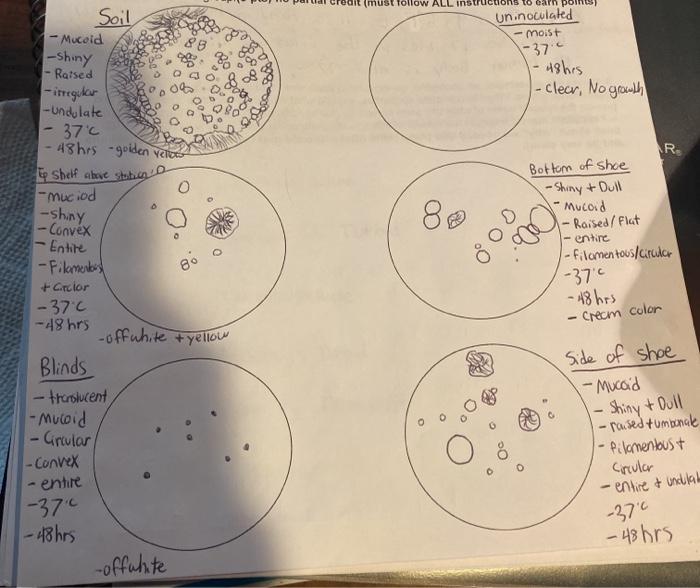 no partial credit (must follow ALL instructions to earn points)
Soil
- Mucoid
- Shiny
- Raised
- irregular
- undulate
- 37°C
- 48hrs - golden yellow
Uninoculated
- moist
- 37°C
- 48hrs
- clear, No growth
Top shelf above station 10
- Muciod
- shiny
- Convex
- Entire
- Filamentous
+ circlar
- 37°C
- 48 hrs
- offwhite + yellow
Bottom of shoe
- Shiny + Dull
- Mucoid
- Raised/Flat
- entire
- filamentous/circular
- 37°C
- 48 hrs
- cream color
Blinds
- translucent
- Mucoid
- Circular
- Convex
- entire
- 37°C
- 48hrs
- offwhite
Side of shoe
- Mucoid
- Shiny + Dull
- raised + umbonate
- filamentous +
circular
- entire + undulate
- 37°C
- 48 hrs
AR